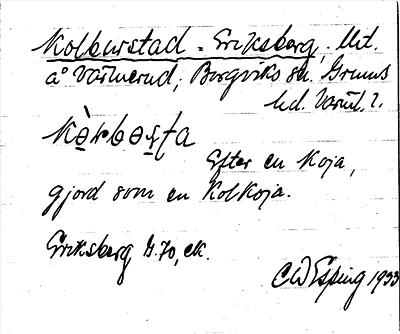 Kolburstad = Eriksberg, Utt.
å Värmerud, Borgviks sn. Grums
hd. Värml. l.
Efter en koja,
gjord som en kolkoja.
Eriksberg g. 70, ek.
CW Esping 1933